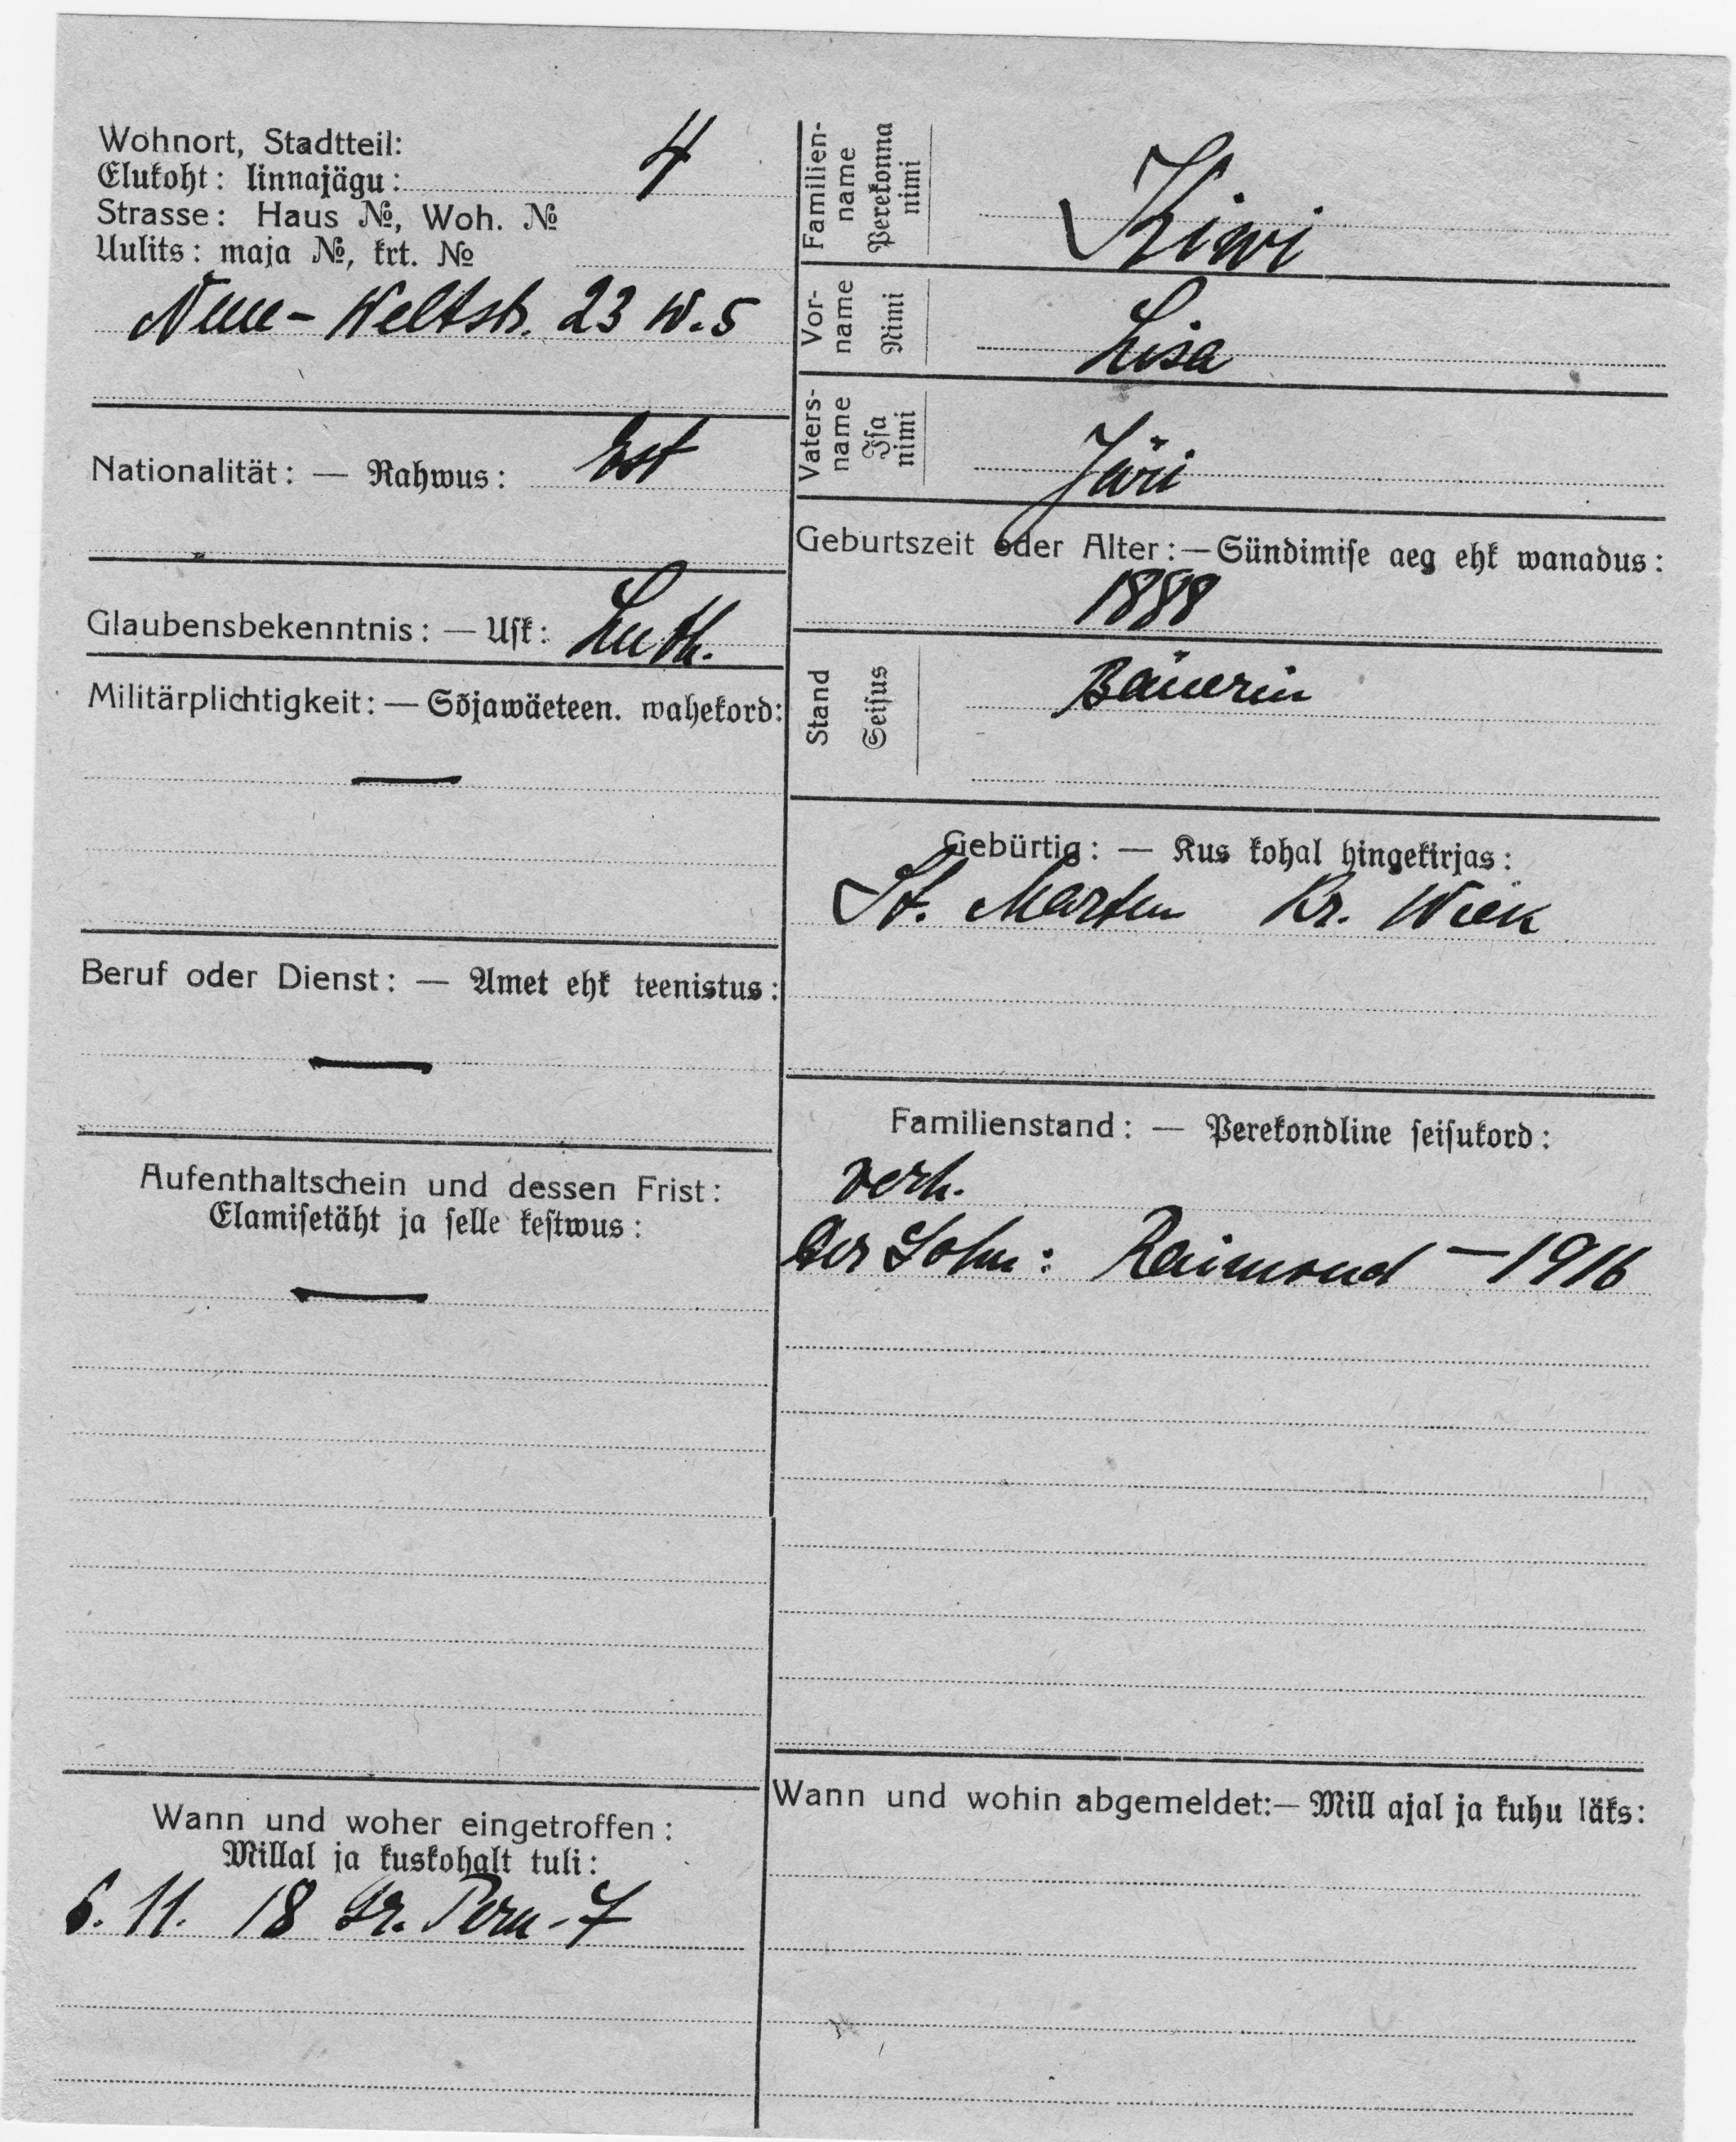 Wohnort, Stadtteil:
Elukoht: linnajägu: 4
Strasse: Haus №, Woh. №
Uulits: maja №, krt. №
Neue-Weltstr. 23 W. 5
Nationalität: — Rahwus: Est
Glaubensbekenntnis: — Usk: Luth.
Militärplichtigkeit: — Sõjawäeteen. wahekord:
—
Beruf oder Dienst: — Amet ehk teenistus:
—
Aufenthaltschein und dessen Frist:
Elamisetäht ja selle kestwus:
—
Wann und woher eingetroffen:
Millal ja kuskohalt tuli:
6. 11. 18 Gr. Pern-7
Familien-
name
Perekonna
nimi
Kiwi
Vor-
name
Nimi
Lisa
Vaters-
name
Isa
nimi
Jüri
Geburtszeit oder Alter: — Sündimise aeg ehk wanadus:
1888
Stand
Seisus
Bäuerin
Gebürtig: — Kus kohal hingekirjas:
St. Marten Kr. Wiek
Familienstand: — Perekondline seisukord:
verh.
der Sohn: Raimond — 1916
Wann und wohin abgemeldet: — Mill ajal ja kuhu läks: